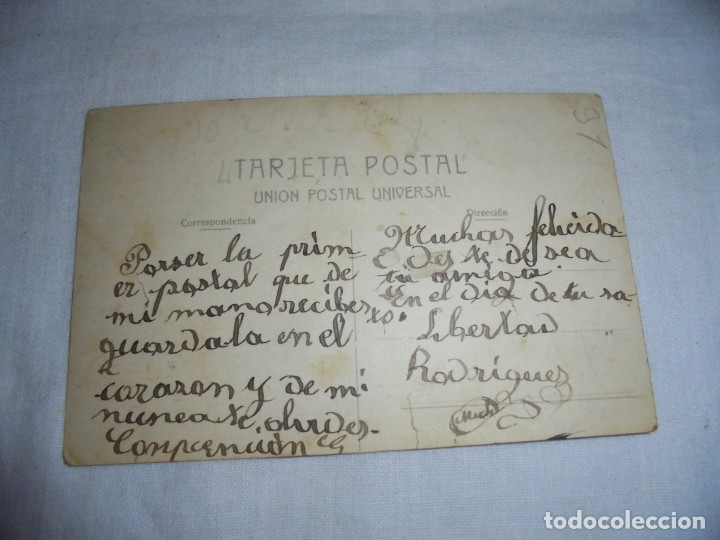 91
TARJETA POSTAL
UNION POSTAL UNIVERSAL
Correspondencia
Porser la prim
er postal que de
mi mano recibes
guardala en el
corazon y de mi
nunca te olvides.
Dirección
Muchas felicida
des te desea
tu amiga.
En el dia de tu sa
to.
Libertad
Rodrigues
todocoleccion.net